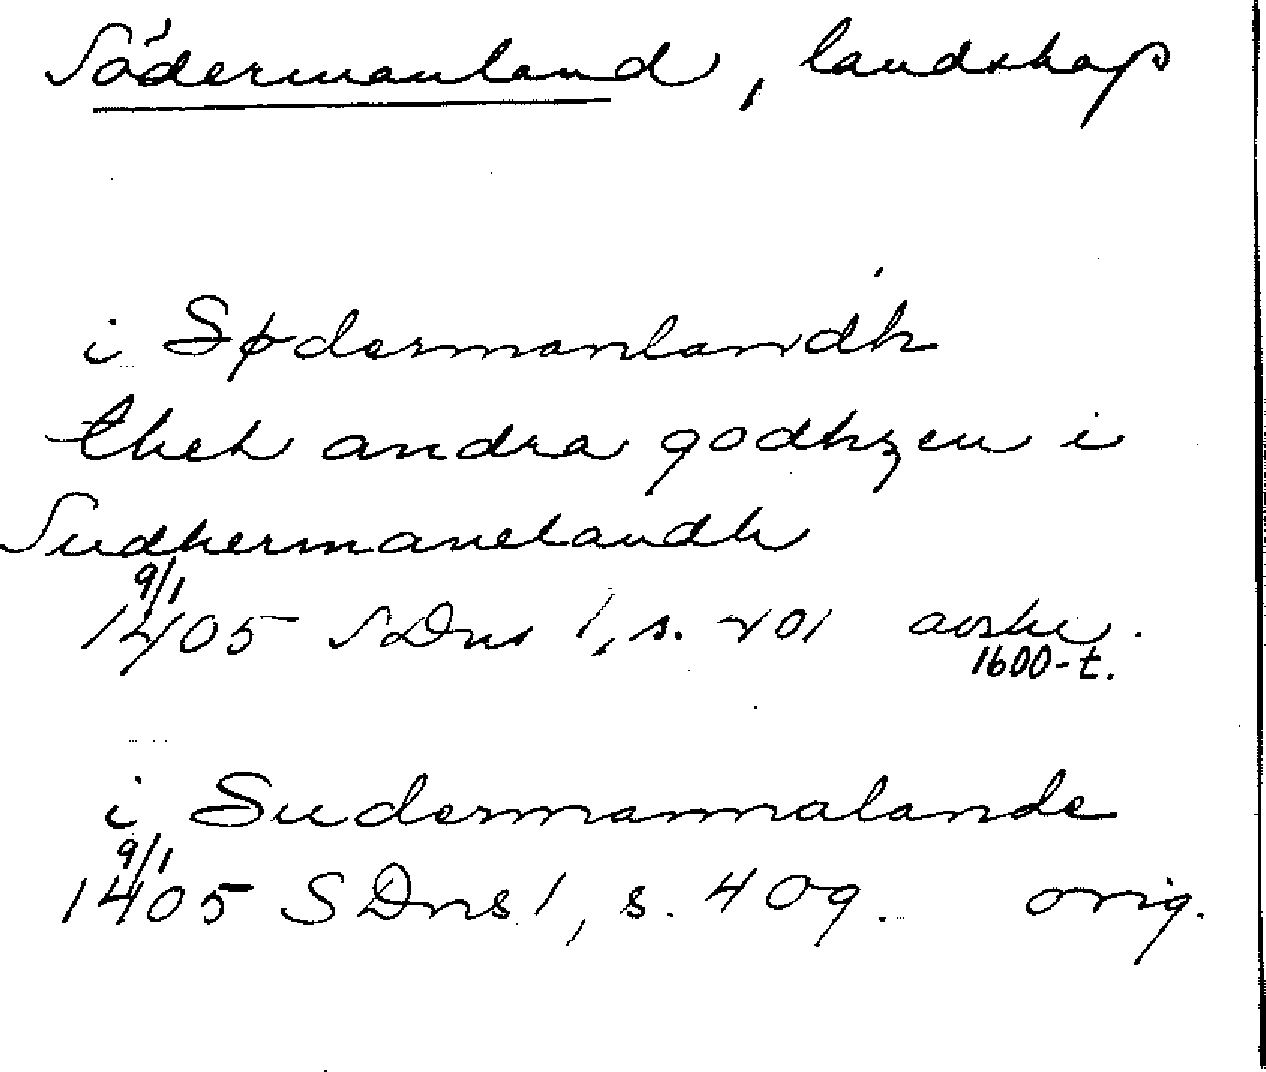 Södermanland, landskap
i Sødermanlandh
thet andra godhzen i
Sudhermanelandh
9/1
1405 SDns 1, s. 401 avskr.
1600-t.
i Sudermannalande
9/1
1405 SDns 1, s. 409. orig.